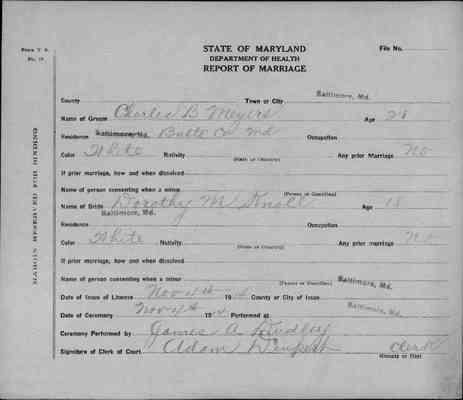 Form V. S.
STATE OF MARYLAND
DEPARTMENT OF HEALTH
REPORT OF MARRIAGE
File No.
MARGIN RESERVED FOR BINDING
County Town or City Baltimore, Md.
Name of Groom Charles B Meyers Age 28
Residence Baltimore, Md. Balto Co Md Occupation
Color White Nativity (State or Country) Any prior Marriage No
If prior marriage, how and when dissolved
Name of person consenting when a minor (Parent or Guardian)
Name of Bride Dorothy M Knoll Age 18
Residence Baltimore, Md. Occupation
Color White Nativity (State or Country) Any prior marriage No
If prior marriage, how and when dissolved
Name of person consenting when a minor (Parent or Guardian)
Date of Issue of License Nov 4th 19 County or City of Issue Baltimore, Md.
Date of Ceremony Nov 4th 19 Performed at Baltimore, Md.
Ceremony Performed by James A
Signature of Clerk of Court Adam Clerk